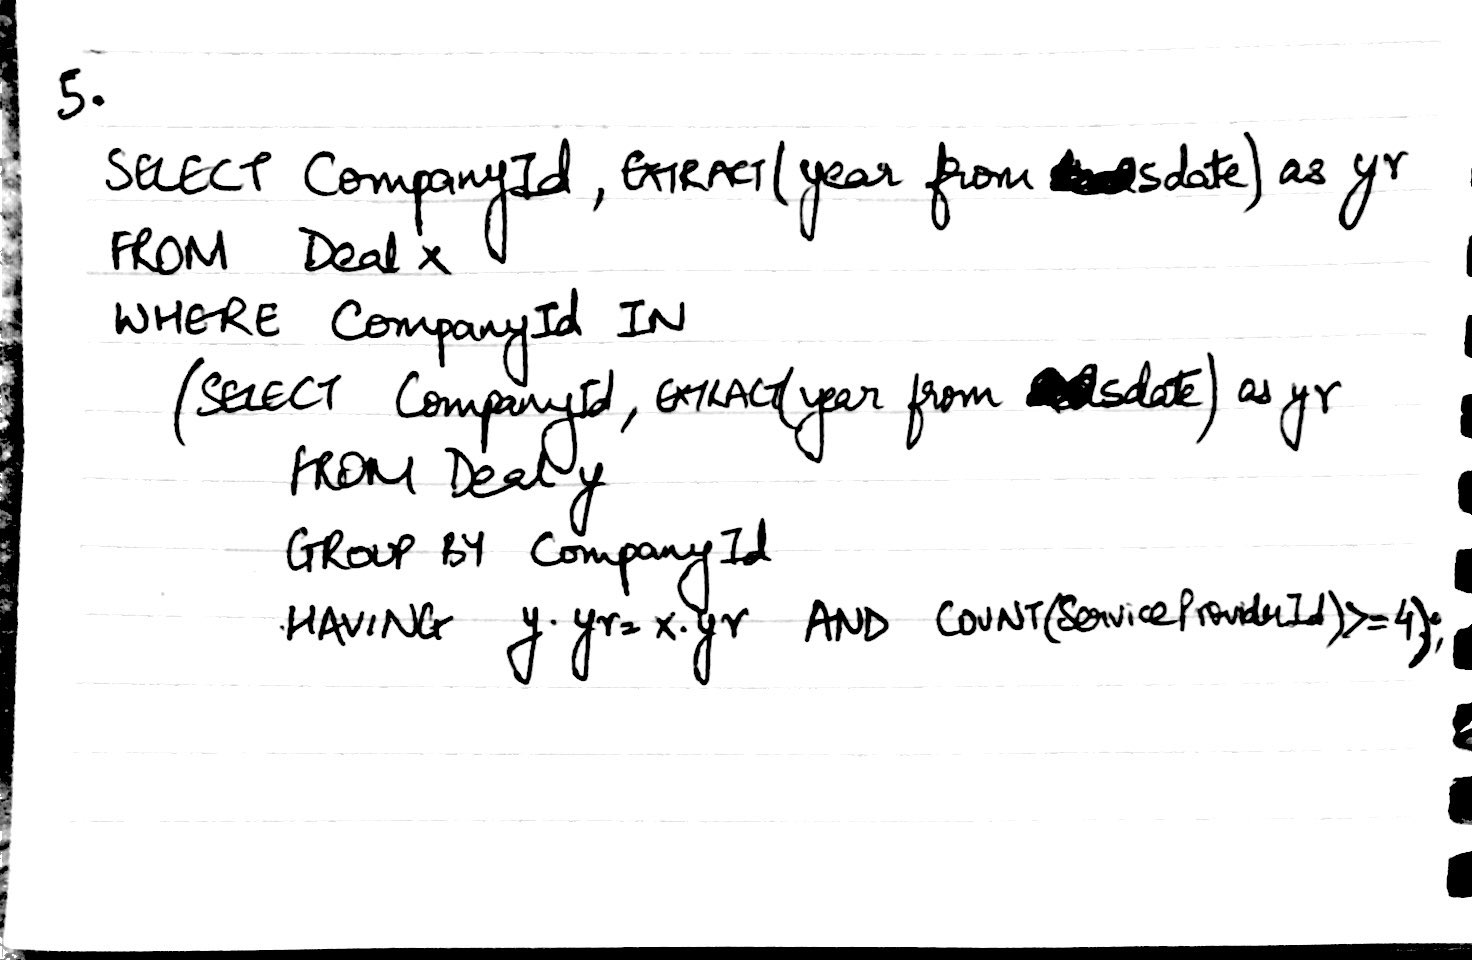 5.
SELECT CompanyId, EXTRACT(year from sdate) as yr
FROM Deal x
WHERE CompanyId IN
(SELECT CompanyId, EXTRACT(year from sdate) as yr
FROM Deal y
GROUP BY CompanyId
HAVING y.yr = x.yr AND COUNT(ServiceProviderId)>=4);